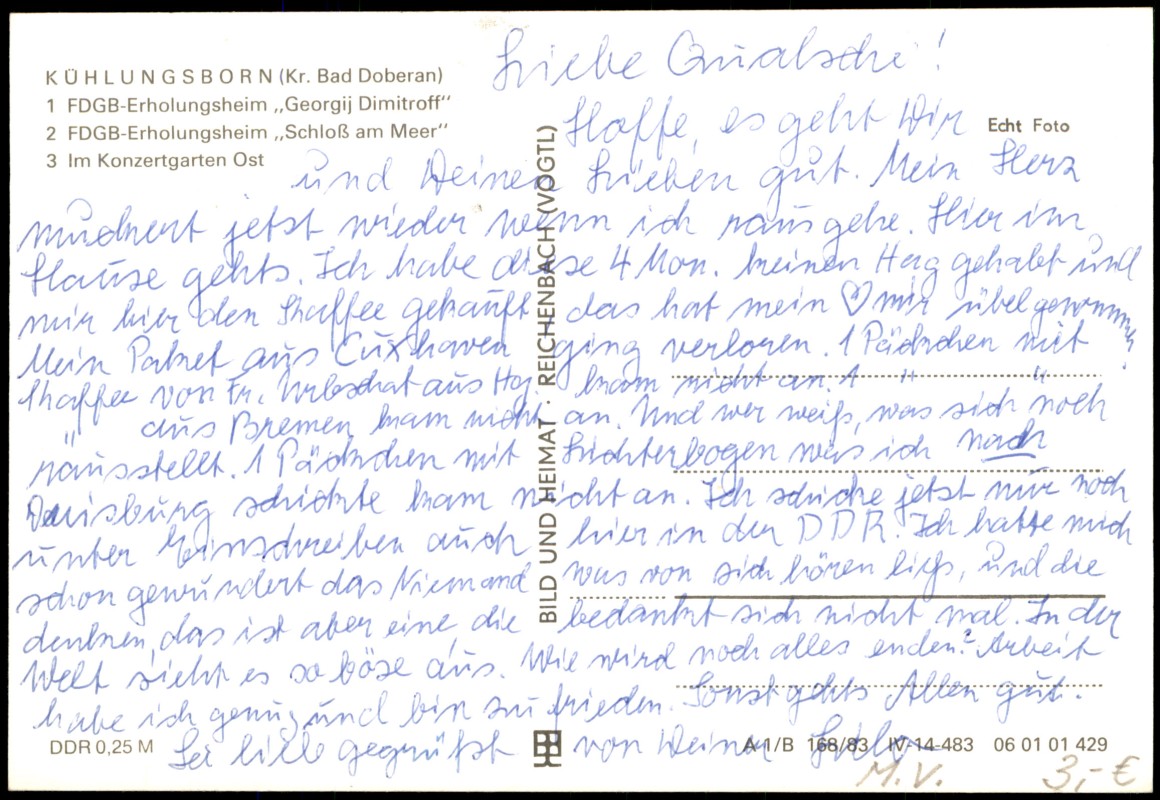 KÜHLUNGSBORN (Kr. Bad Doberan)
1 FDGB-Erholungsheim „Georgij Dimitroff“
2 FDGB-Erholungsheim „Schloß am Meer“
3 Im Konzertgarten Ost
Echt Foto
BILD UND HEIMAT · REICHENBACH (VOGTL)
Liebe Qualschi!
Hoffe, es geht Dir
und Deinen Lieben gut. Mein Herz
muckert jetzt wieder wenn ich rausgehe. Hier im
Hause gehts. Ich habe diese 4 Mon. keinen Hag gehabt und
mir hier den Kaffee gekauft, das hat mein ♡ mir übelgenommen
Mein Paket aus Cuxhaven ging verloren. 1 Päckchen mit
Kaffee von Fr. aus Hag kam nicht an. 1 " "
" aus Bremen kam nicht an. Und wer weiß, was sich noch
rausstellt. 1 Päckchen mit Lichterbogen was ich nach
Duisburg schickte kam nicht an. Ich schicke jetzt nur noch
unter Einschreiben auch hier in der DDR. Ich hatte mich
schon gewundert das Niemand was von sich hören ließ, und die
denken, das ist aber eine, die bedankt sich nicht mal. In der
Welt sieht es so böse aus. Wie wird noch alles enden? Arbeit
habe ich genug und bin zufrieden. Sonst gehts Allen gut.
Sei lieb gegrüßt von Deiner
DDR 0,25 M
A 1/B 168/83 IV-14-483 06 01 01 429
M.V. 3,- €